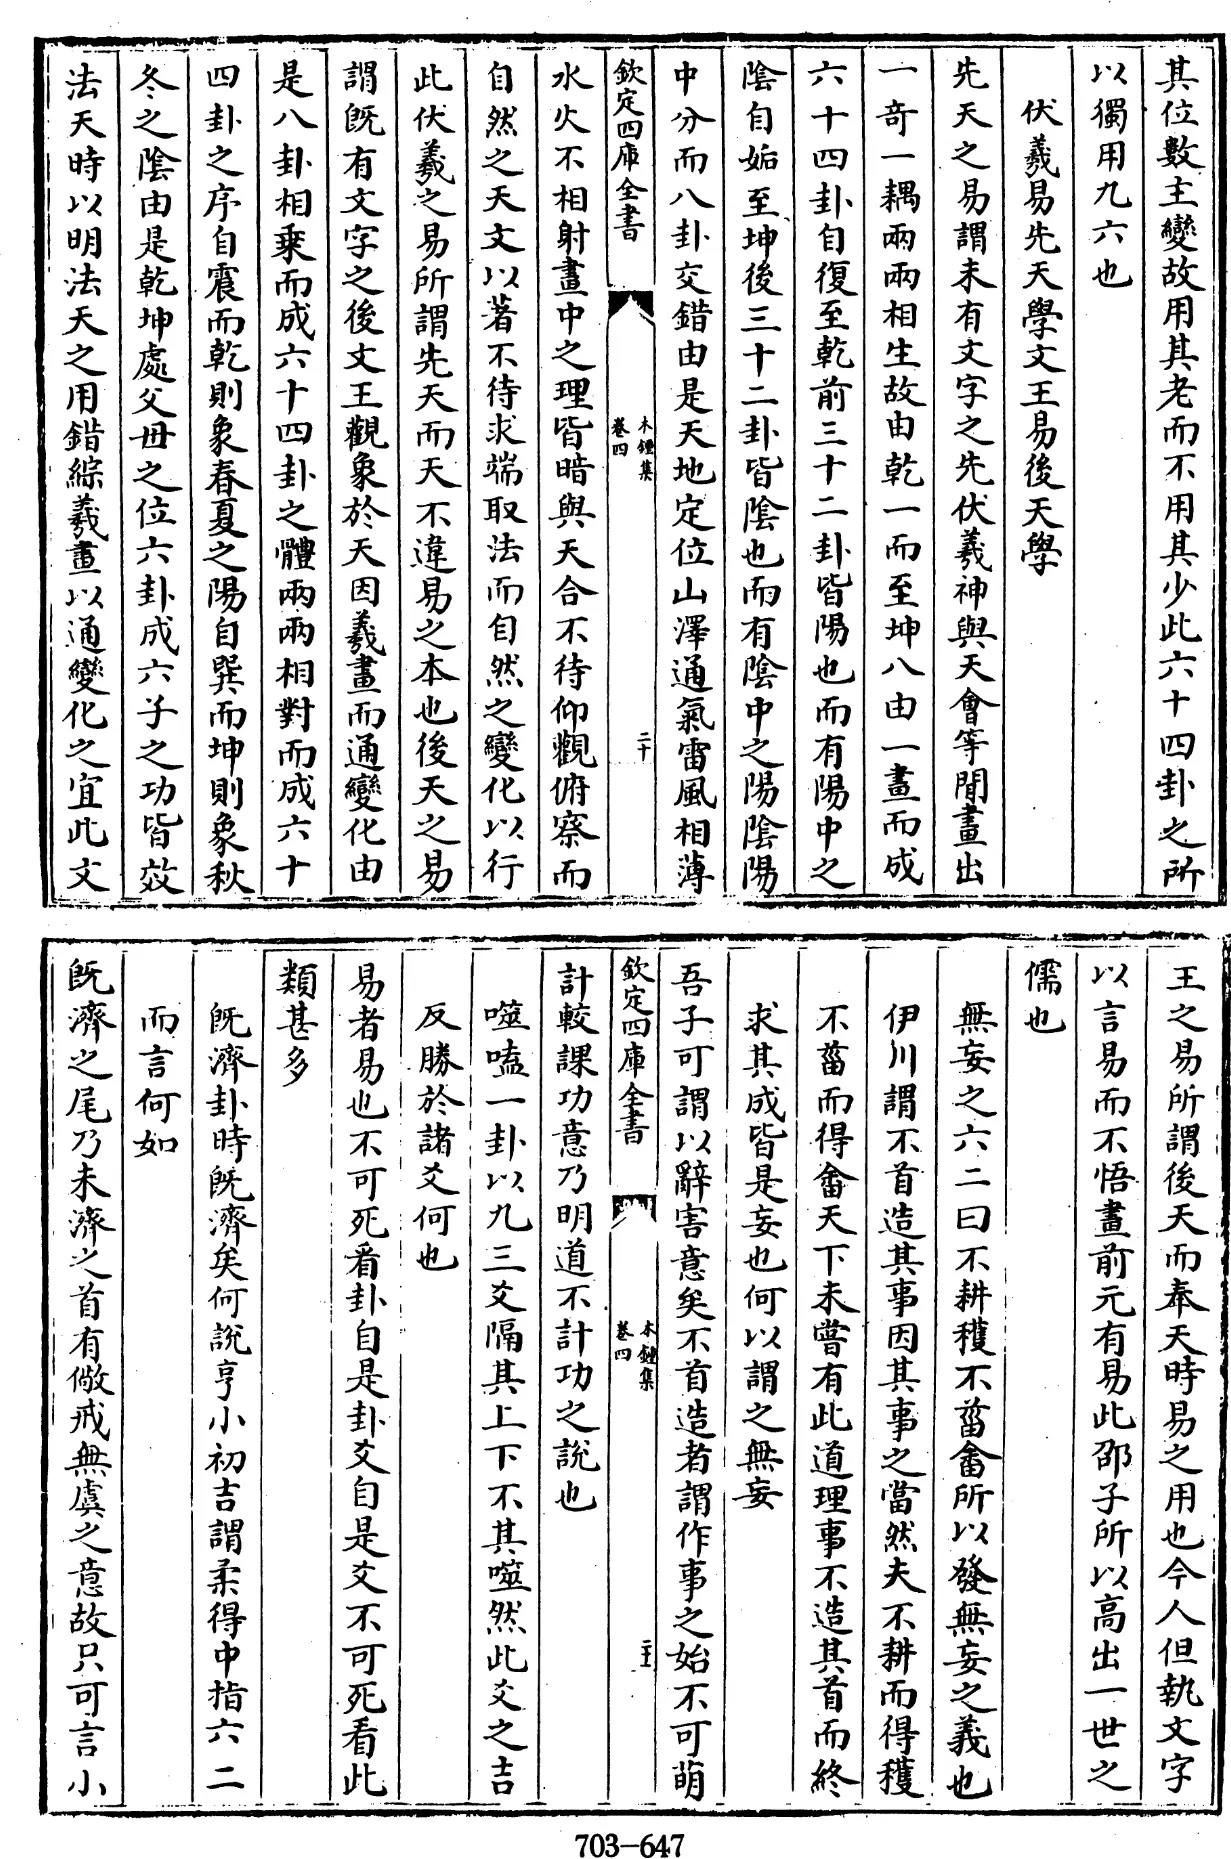 其位數主變故用其老而不用其少此六十四卦之所
以獨用九六也
伏羲易先天學文王易後天學
先天之易謂未有文字之先伏羲神與天會等閒畫出
一奇一耦兩兩相生故由乾一而至坤八由一畫而成
六十四卦自復至乾前三十二卦皆陽也而有陽中之
陰自姤至坤後三十二卦皆陰也而有陰中之陽陰陽
中分而八卦交錯由是天地定位山澤通氣雷風相薄
欽定四庫全書
木鍾集
卷四
二十
水火不相射畫中之理皆暗與天合不待仰觀俯察而
自然之天文以著不待求端取法而自然之變化以行
此伏羲之易所謂先天而天不違易之本也後天之易
謂既有文字之後文王觀象於天因羲畫而通變化由
是八卦相乘而成六十四卦之體兩兩相對而成六十
四卦之序自震而乾則象春夏之陽自巽而坤則象秋
冬之陰由是乾坤處父毋之位六卦成六子之功皆效
法天時以明法天之用錯綜羲畫以通變化之宜此文
王之易所謂後天而奉天時易之用也今人但執文字
以言易而不悟畫前元有易此邵子所以高出一世之
儒也
無妄之六二曰不耕穫不菑畬所以發無妄之義也
伊川謂不首造其事因其事之當然夫不耕而得穫
不菑而得畬天下未嘗有此道理事不造其首而終
求其成皆是妄也何以謂之無妄
吾子可謂以辭害意矣不首造者謂作事之始不可萌
欽定四庫全書
木鍾集
卷四
二十一
計較課功意乃明道不計功之說也
噬嗑一卦以九三爻隔其上下不其噬然此爻之吉
反勝於諸爻何也
易者易也不可死看卦自是卦爻自是爻不可死看此
類甚多
既濟卦時既濟矣何說亨小初吉謂柔得中指六二
而言何如
既濟之尾乃未濟之首有儆戒無虞之意故只可言小
703-647